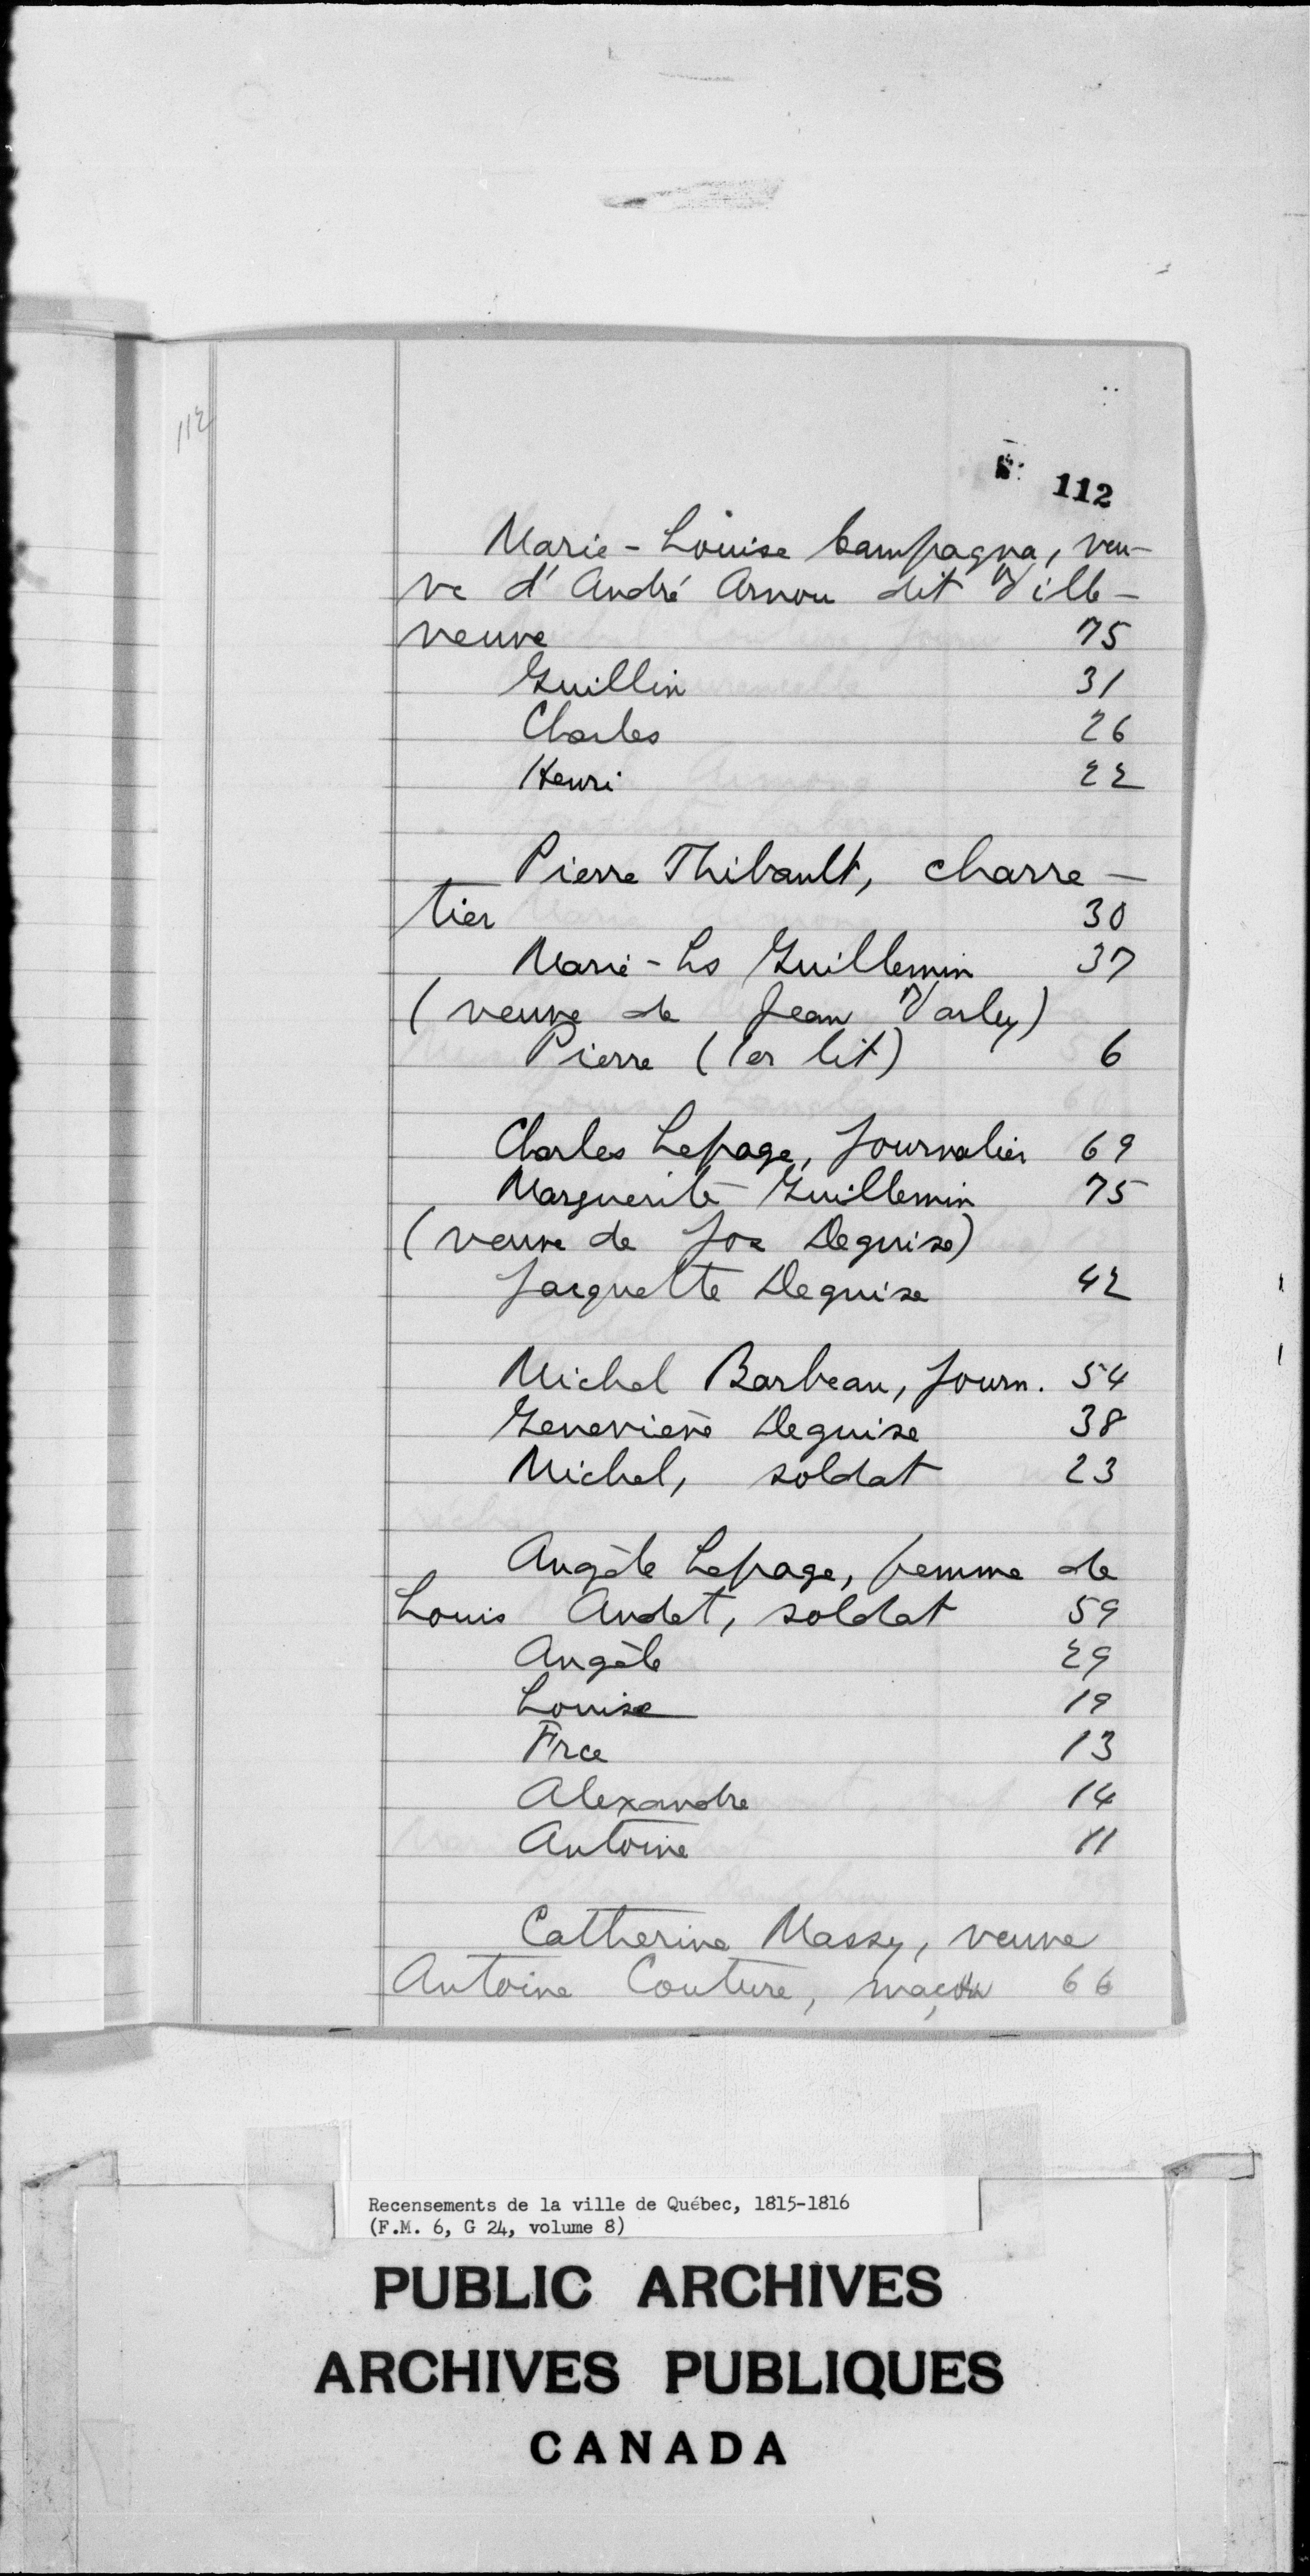 112
112
Marie-Louise Campagna, veu-
ve d'André Arnou dit Ville-
neuve 75
Guillin 31
Charles 26
Henri 22
Pierre Thibault, charre-
tier 30
Marie-Ls Guillemin 37
(veuve de Jean Varley)
Pierre (1er lit) 6
Charles Lepage, Journalier 69
Marguerite Guillemin 75
(veuve de Jos Deguise)
Jacquette Deguise 42
Michel Barbeau, Journ. 54
Geneviève Deguise 38
Michel, soldat 23
Angèle Lepage, femme de
Louis Audet, soldat 59
Angèle 29
Louise 19
Frce 13
Alexandre 14
Antoine 11
Catherine Massy, veuve
Antoine Couture, maçon 66
Recensements de la ville de Québec, 1815-1816
(F.M. 6, G 24, volume 8)
PUBLIC ARCHIVES
ARCHIVES PUBLIQUES
CANADA